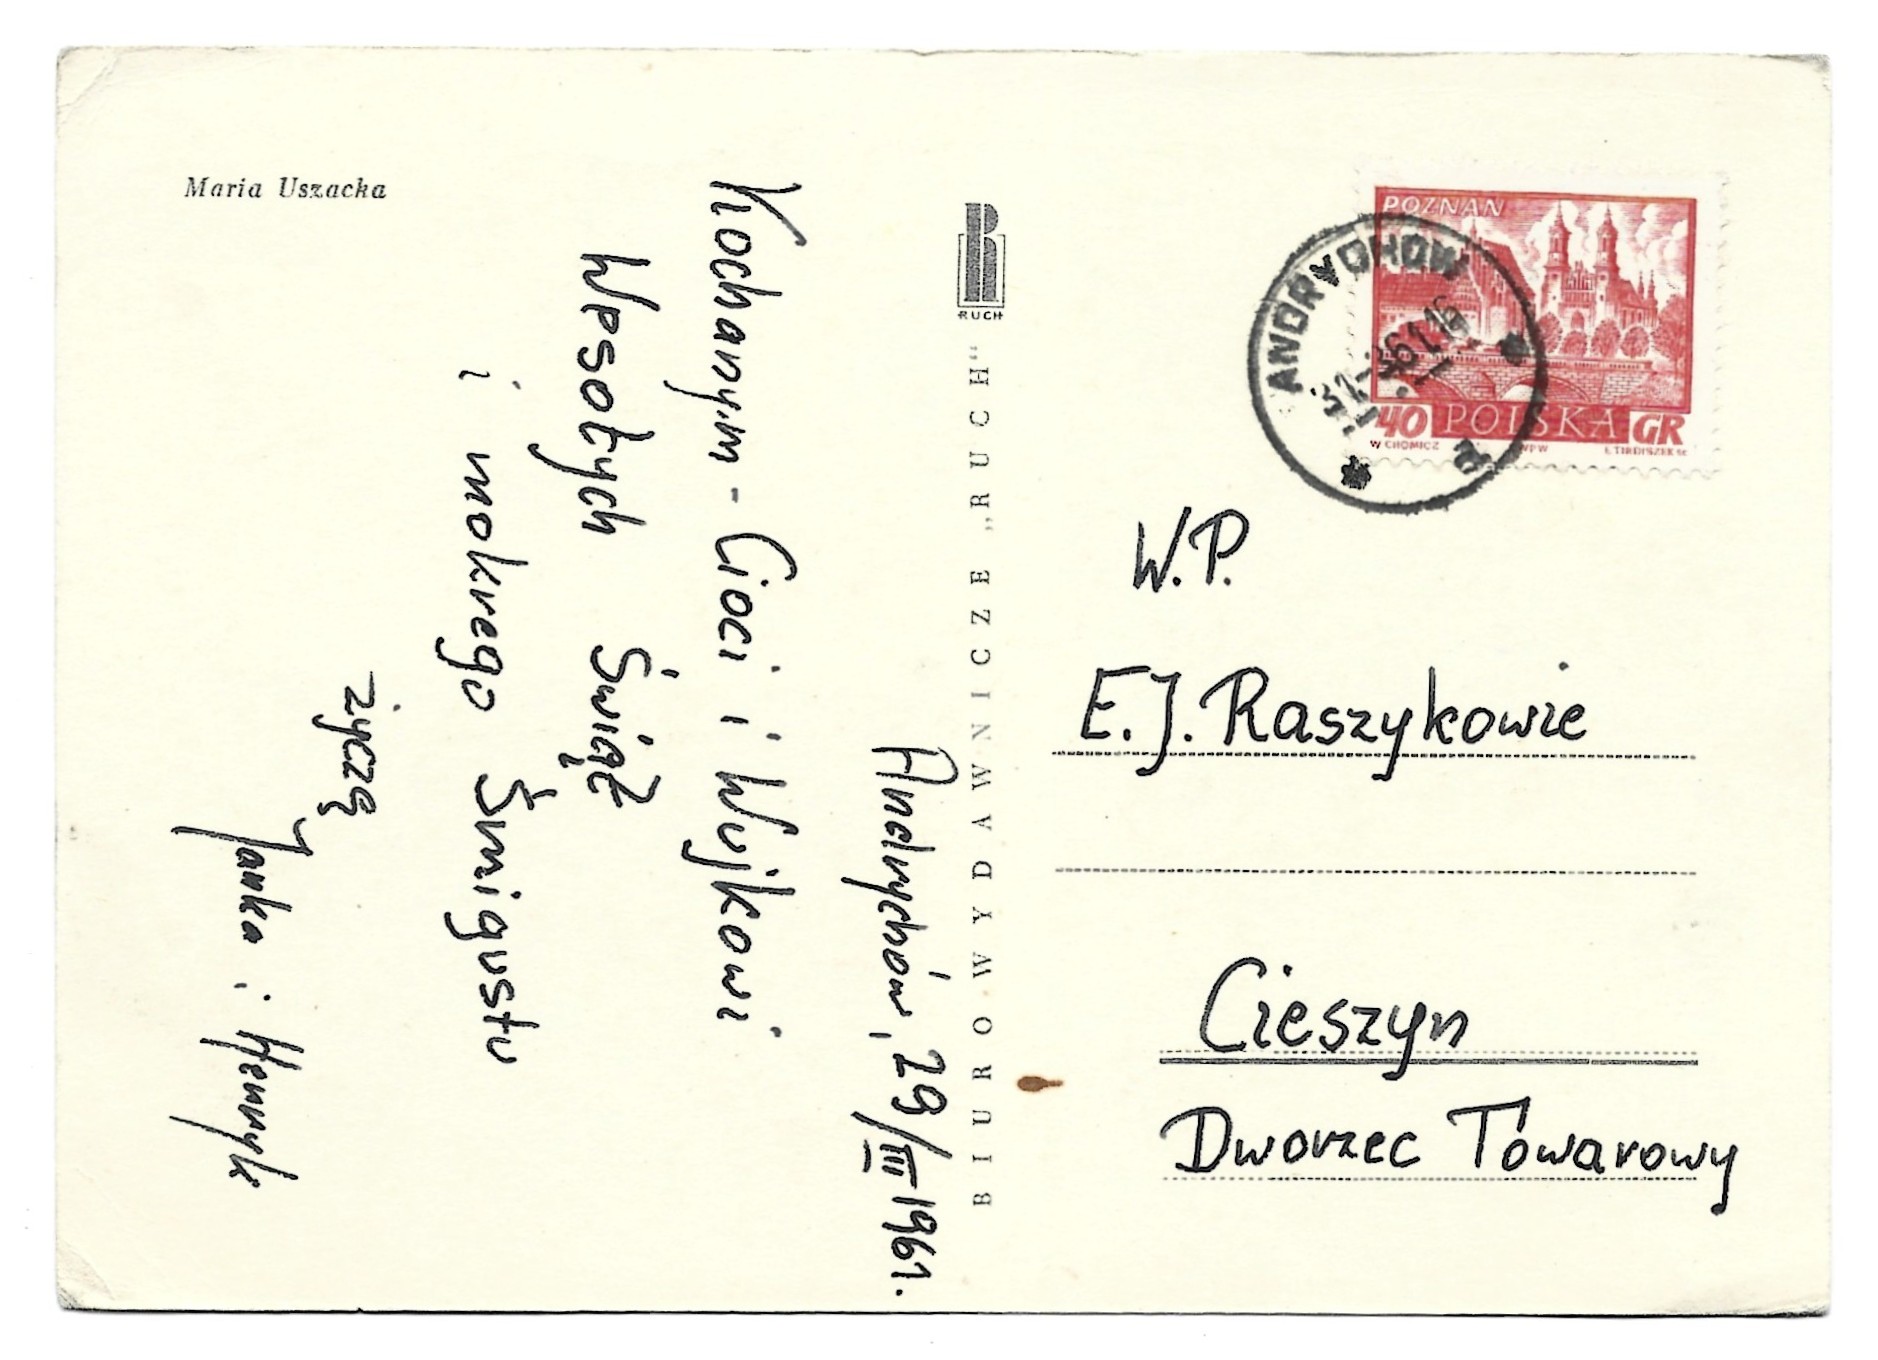 Maria Uszacka
Andrychów, 29/III 1961.
Kochanym - Cioci i Wujkowi
Wesołych Świąt
i mokrego Śmigustu
życzą
Janka i Henryk
RUCH
BIURO WYDAWNICZE „RUCH"
POZNAŃ
40 POLSKA GR
W CHOMICZ WPW Ł. TIRDISZEK sc.
ANDRYCHÓW
W.P.
E.J. Raszykowie
Cieszyn
Dworzec Towarowy